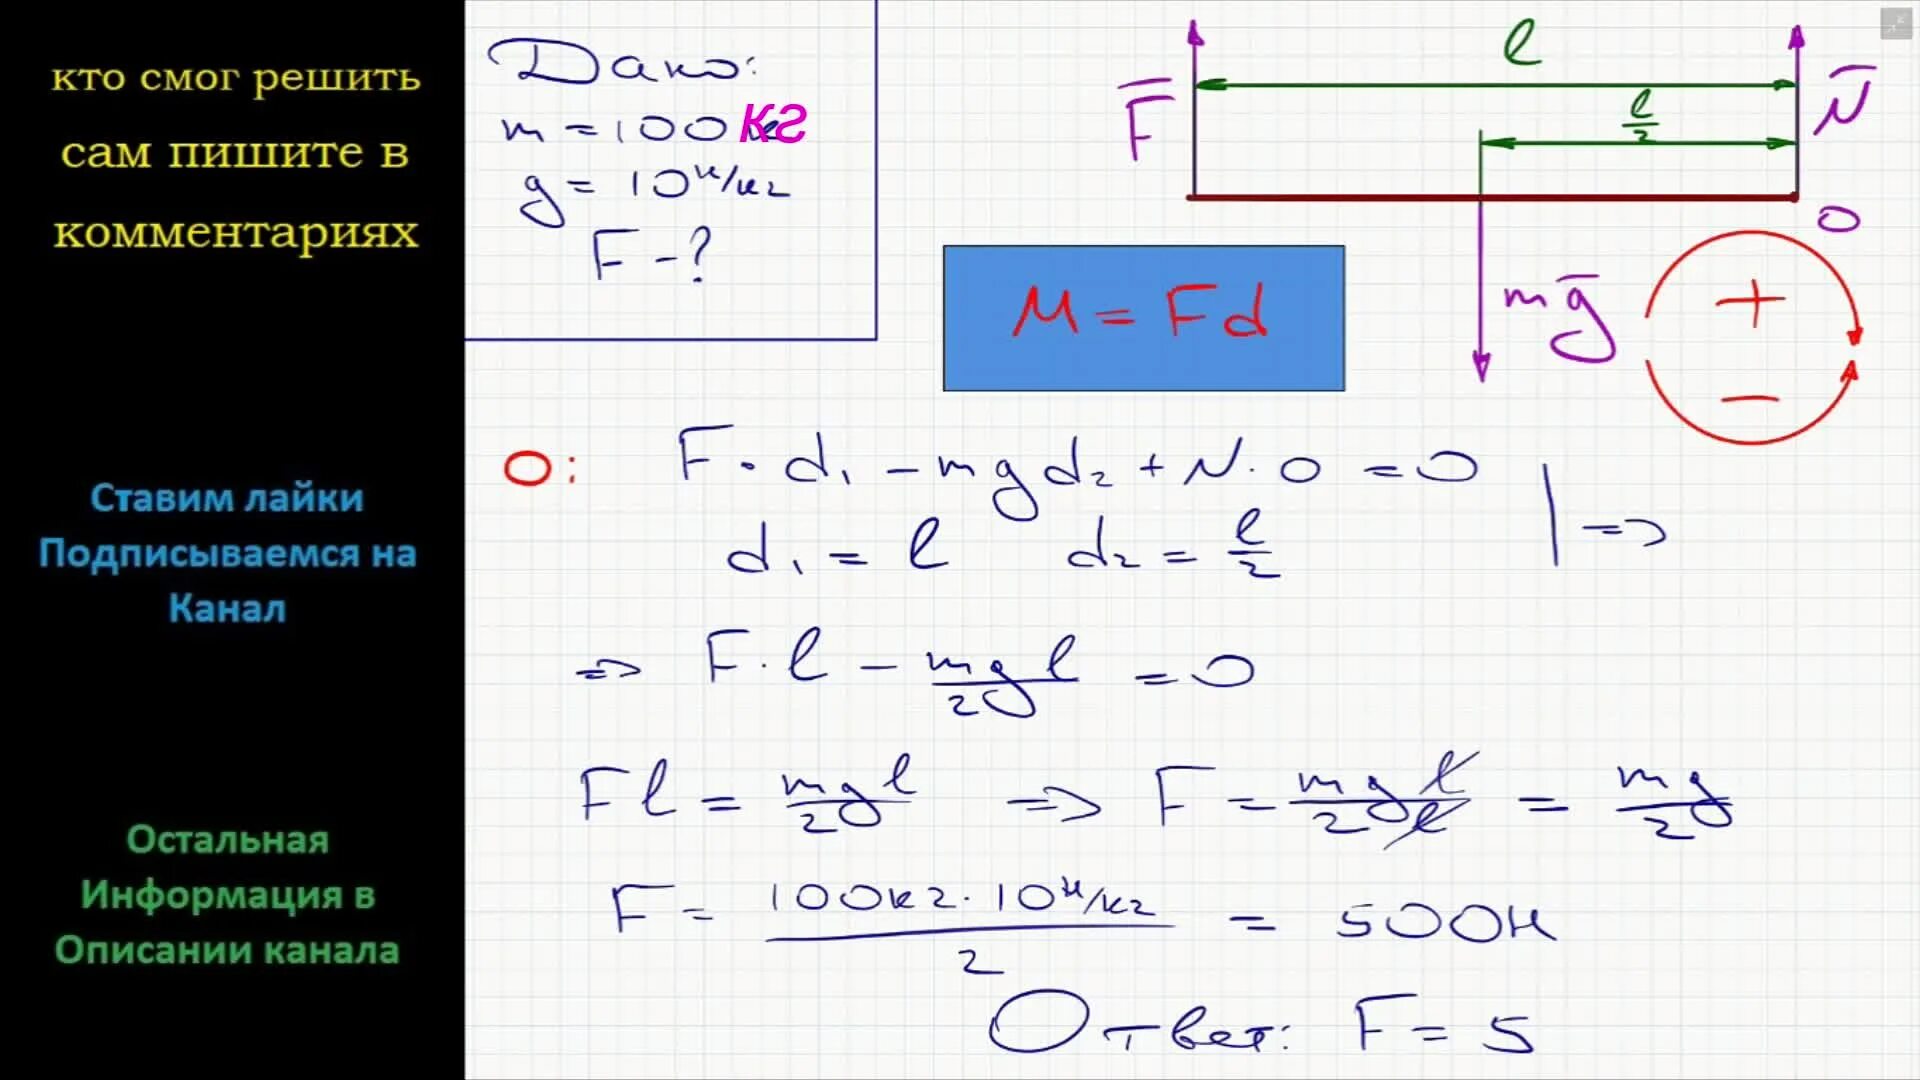 кто смог решить
сам пишите в
комментариях
Ставим лайки
Подписываемся на
Канал
Остальная
Информация в
Описании канала
Дано:
m = 100 кг
g = 10 Н/кг
F - ?
F
l
l/2
N
O
mg
+
−
M = Fd
O: F · d₁ − mg d₂ + N · 0 = 0 | =>
d₁ = l d₂ = l/2
=> F · l − mgl/2 = 0
Fl = mgl/2 => F = mgl/2l = mg/2
F = 100кг · 10 Н/кг / 2 = 500Н
Ответ: F = 5